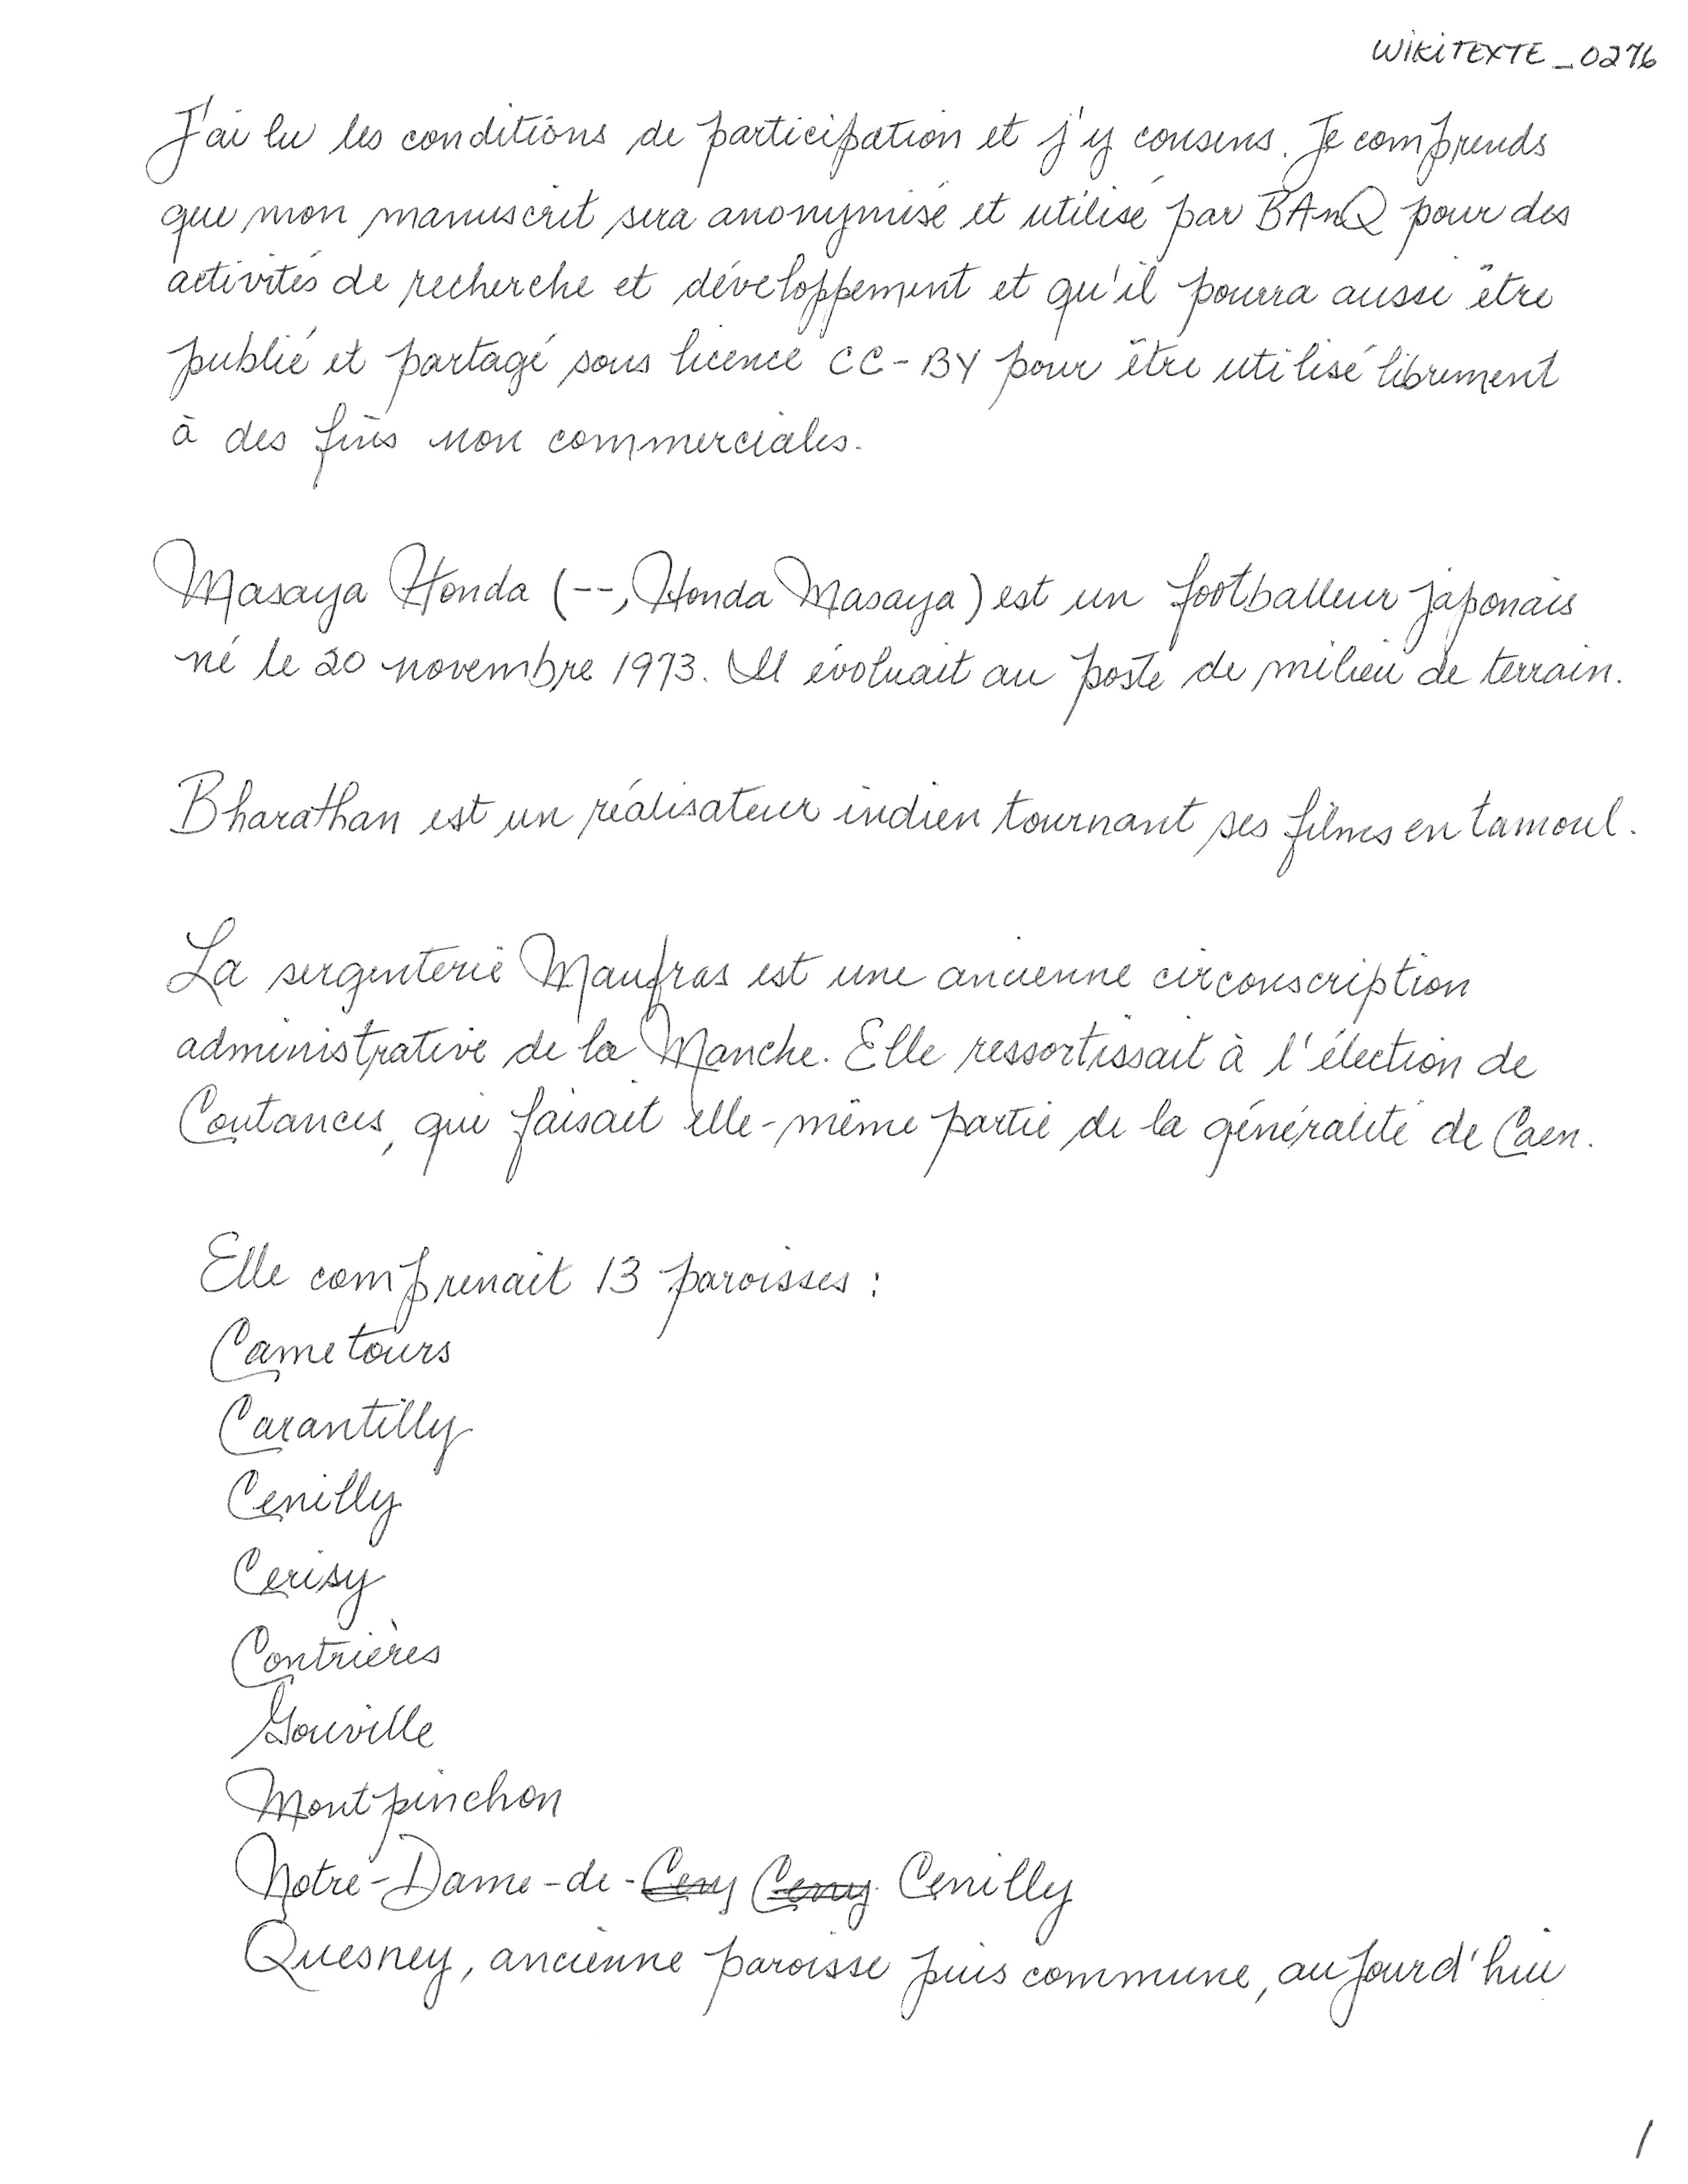 WIKITEXTE_0276
J'ai lu les conditions de participation et j'y consens. Je comprends
que mon manuscrit sera anonymisé et utilisé par BAnQ pour des
activités de recherche et développement et qu'il pourra aussi être
publié et partagé sous licence CC-BY pour être utilisé librement
à des fins non commerciales.
Masaya Honda (--, Honda Masaya) est un footballeur japonais
né le 20 novembre 1973. Il évoluait au poste de milieu de terrain.
Bharathan est un réalisateur indien tournant ses films en tamoul.
La sergenterie Maufras est une ancienne circonscription
administrative de la Manche. Elle ressortissait à l'élection de
Coutances, qui faisait elle-même partie de la généralité de Caen.
Elle comprenait 13 paroisses :
Cametours
Carantilly
Cenilly
Cerisy
Contrières
Gouville
Montpinchon
Notre-Dame-de-Ceny Ceny Cenilly
Quesney, ancienne paroisse puis commune, aujourd'hui
1